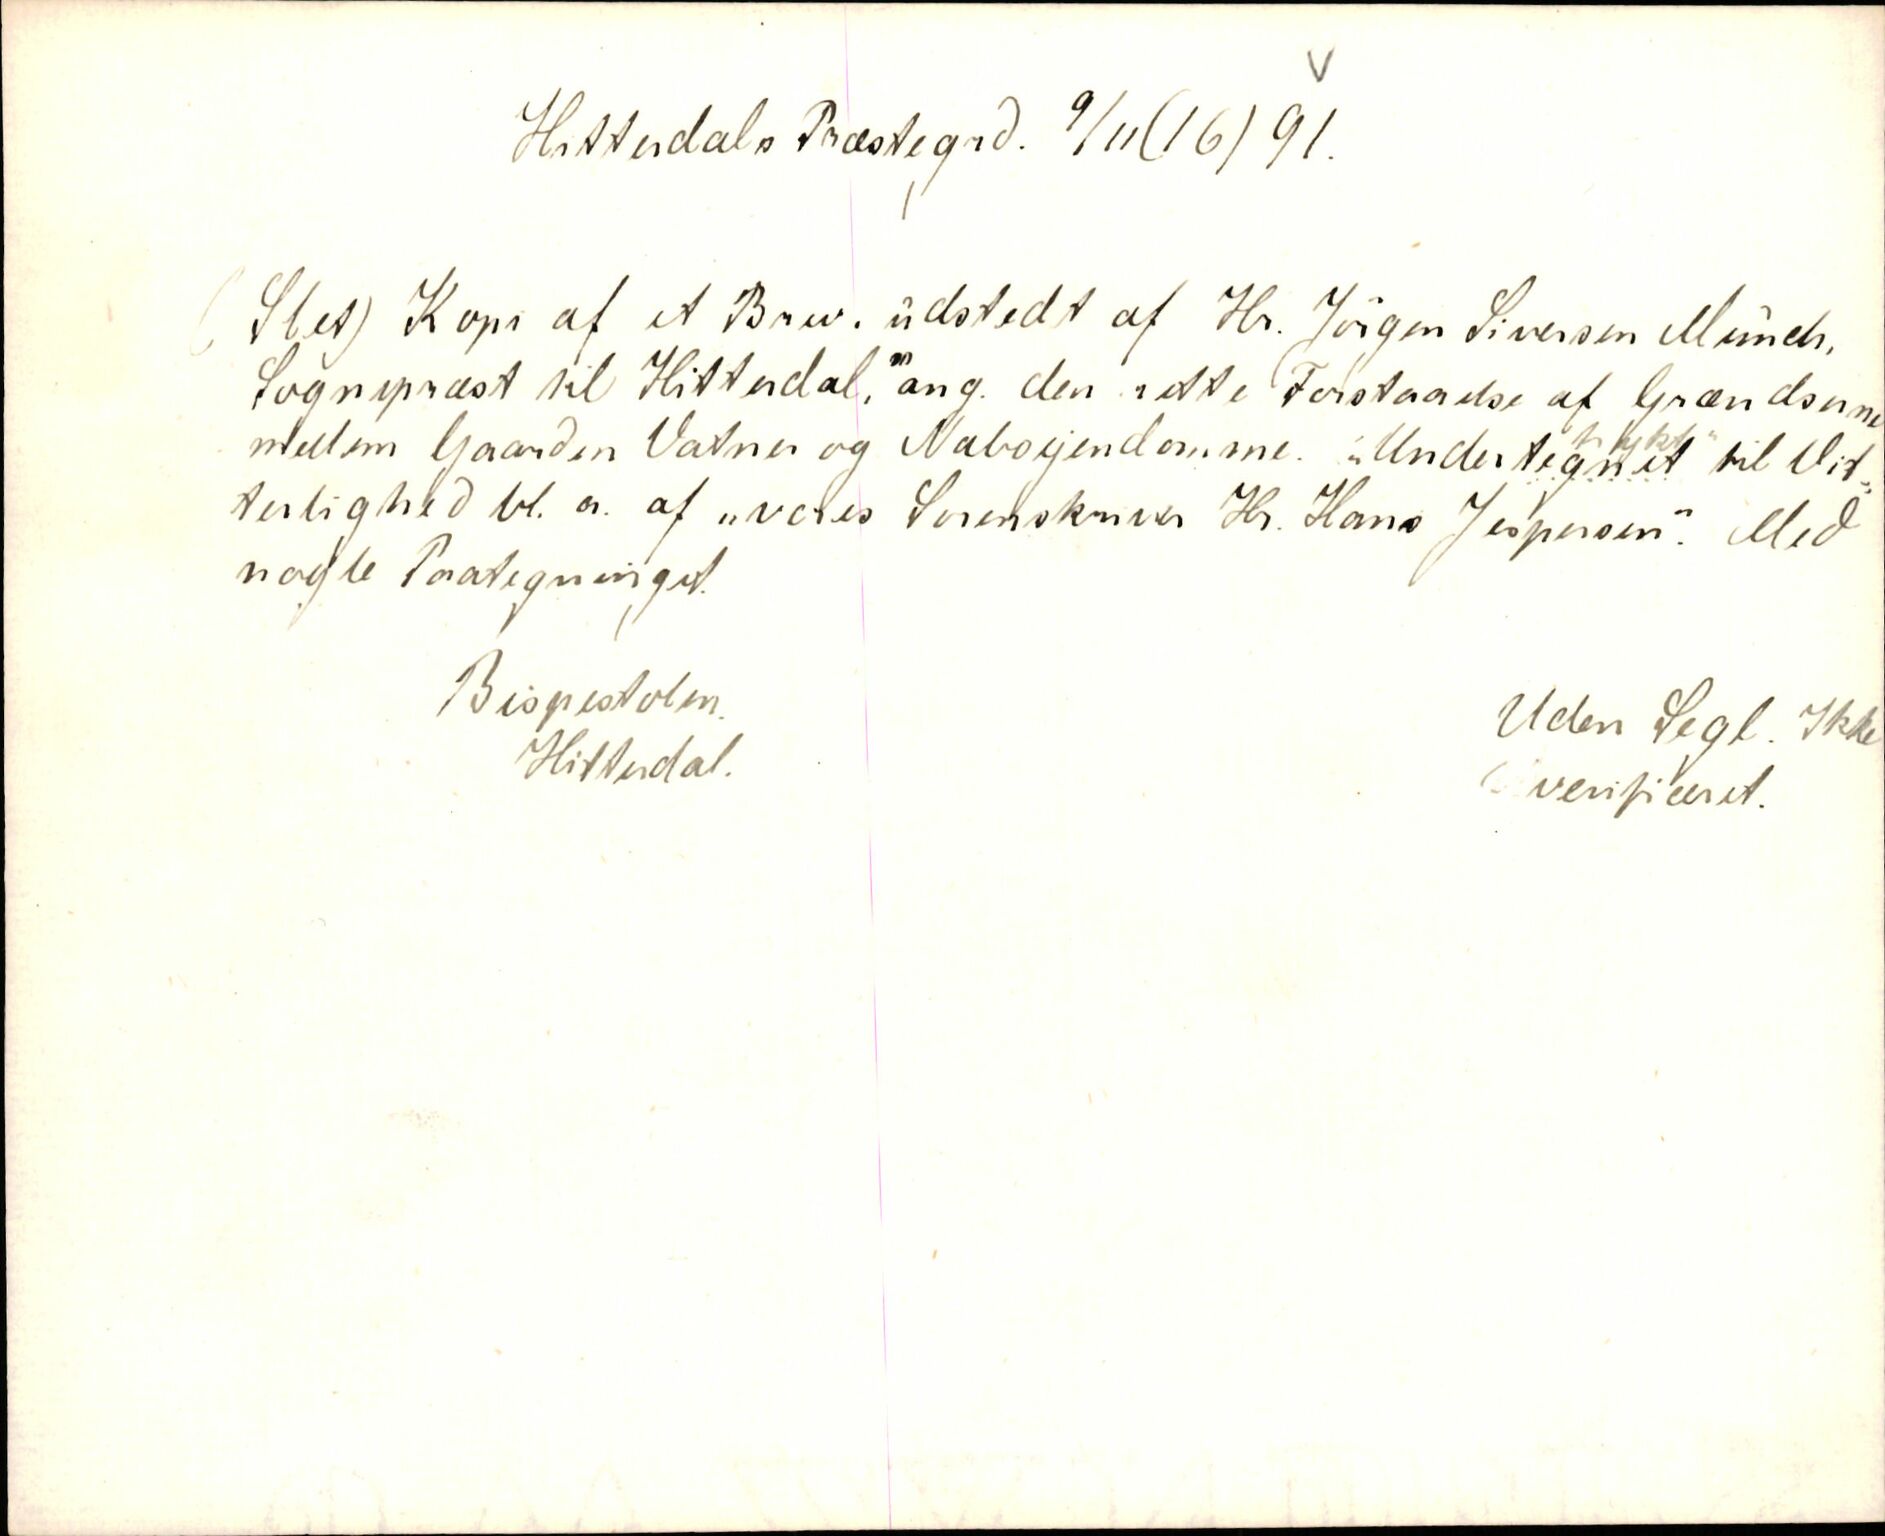 V
Hitterdals Præstegrd. 9/11 (16) 91.
(Slet) Kopi af et Brev, udstedt af Hr. Jörgen Siversen Münch,
Sognepræst til Hitterdal, ang. den rette Forstaaelse af Grændserne
mellem Gaarden Vatner og Naboejendomme. "Undertegnet" til Vit-
terlighed bl. a. af "vores Sorenskriver Hr. Hans Jespersen". Med
nogle Paategninger.
Bispestolen.
Hitterdal.
Uden Segl. Ikke
verificeret.